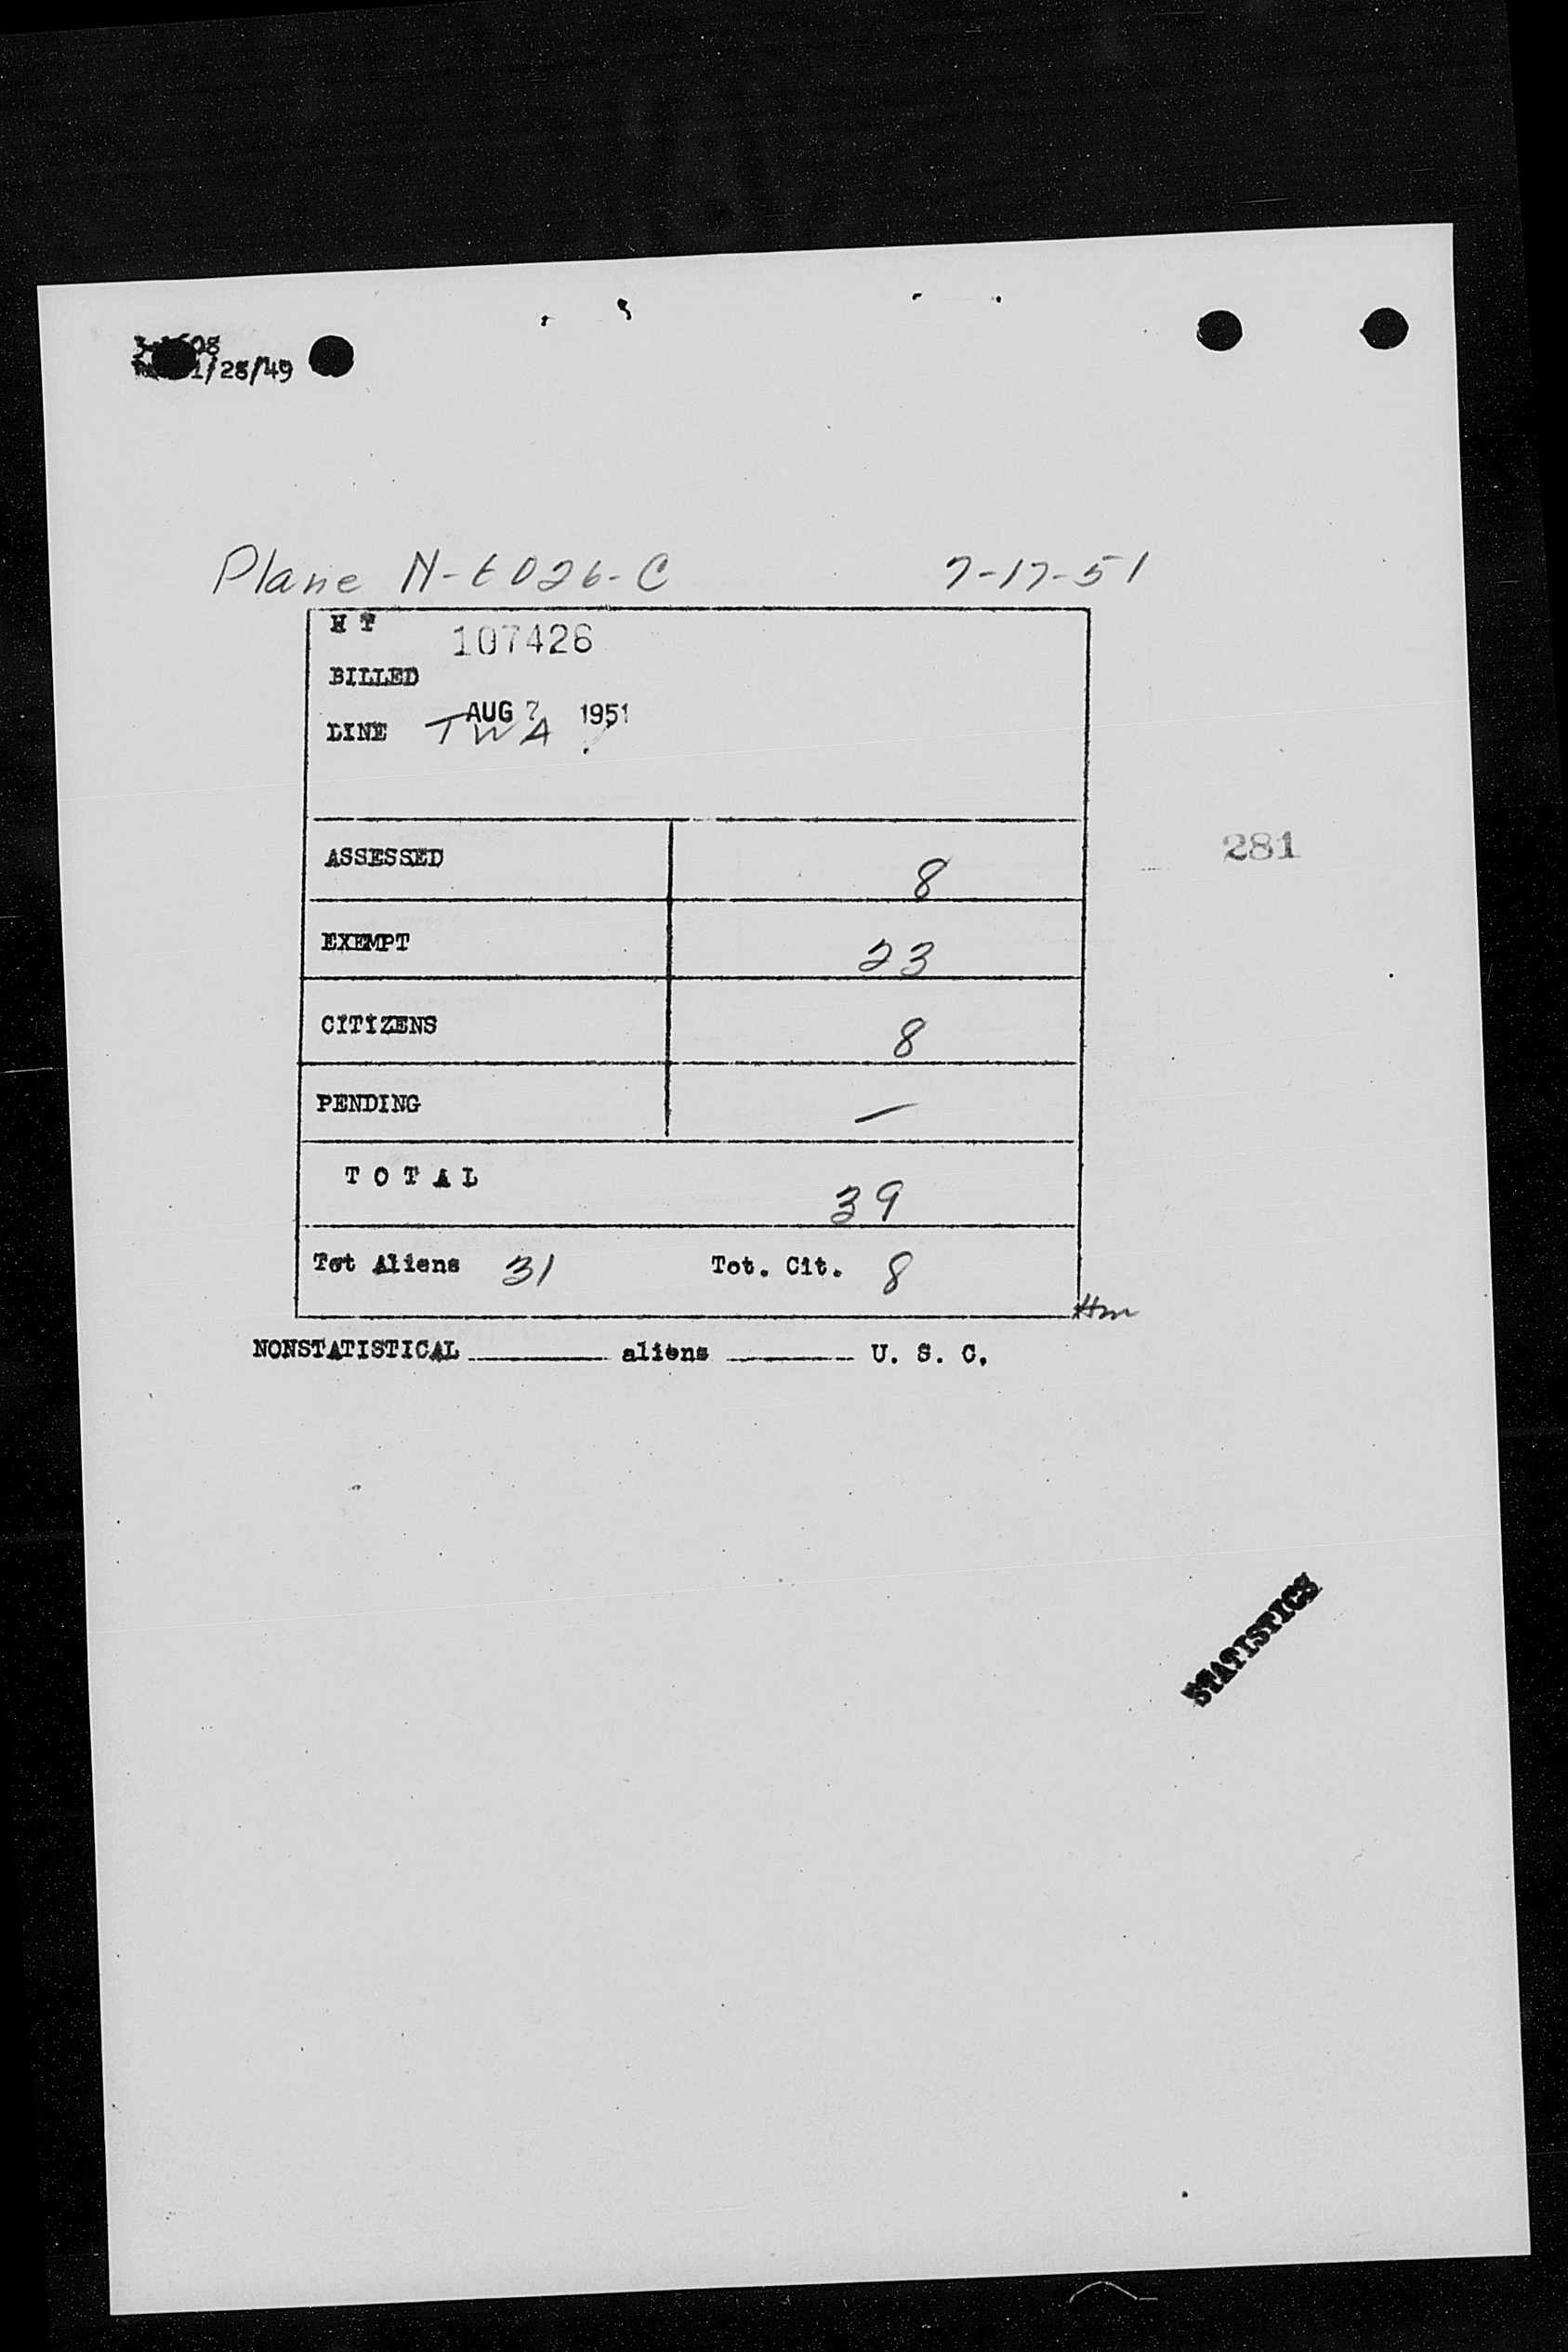 1/25/49
Plane N-6026-C 7-17-51
H T 107426
BILLED
AUG 7 1951
LINE TWA
ASSESSED 8
281
EXEMPT 23
CITIZENS 8
PENDING —
T O T A L 39
Tot Aliens 31 Tot. Cit. 8
NONSTATISTICAL ________ aliens ________ U. S. C.
STATISTICS